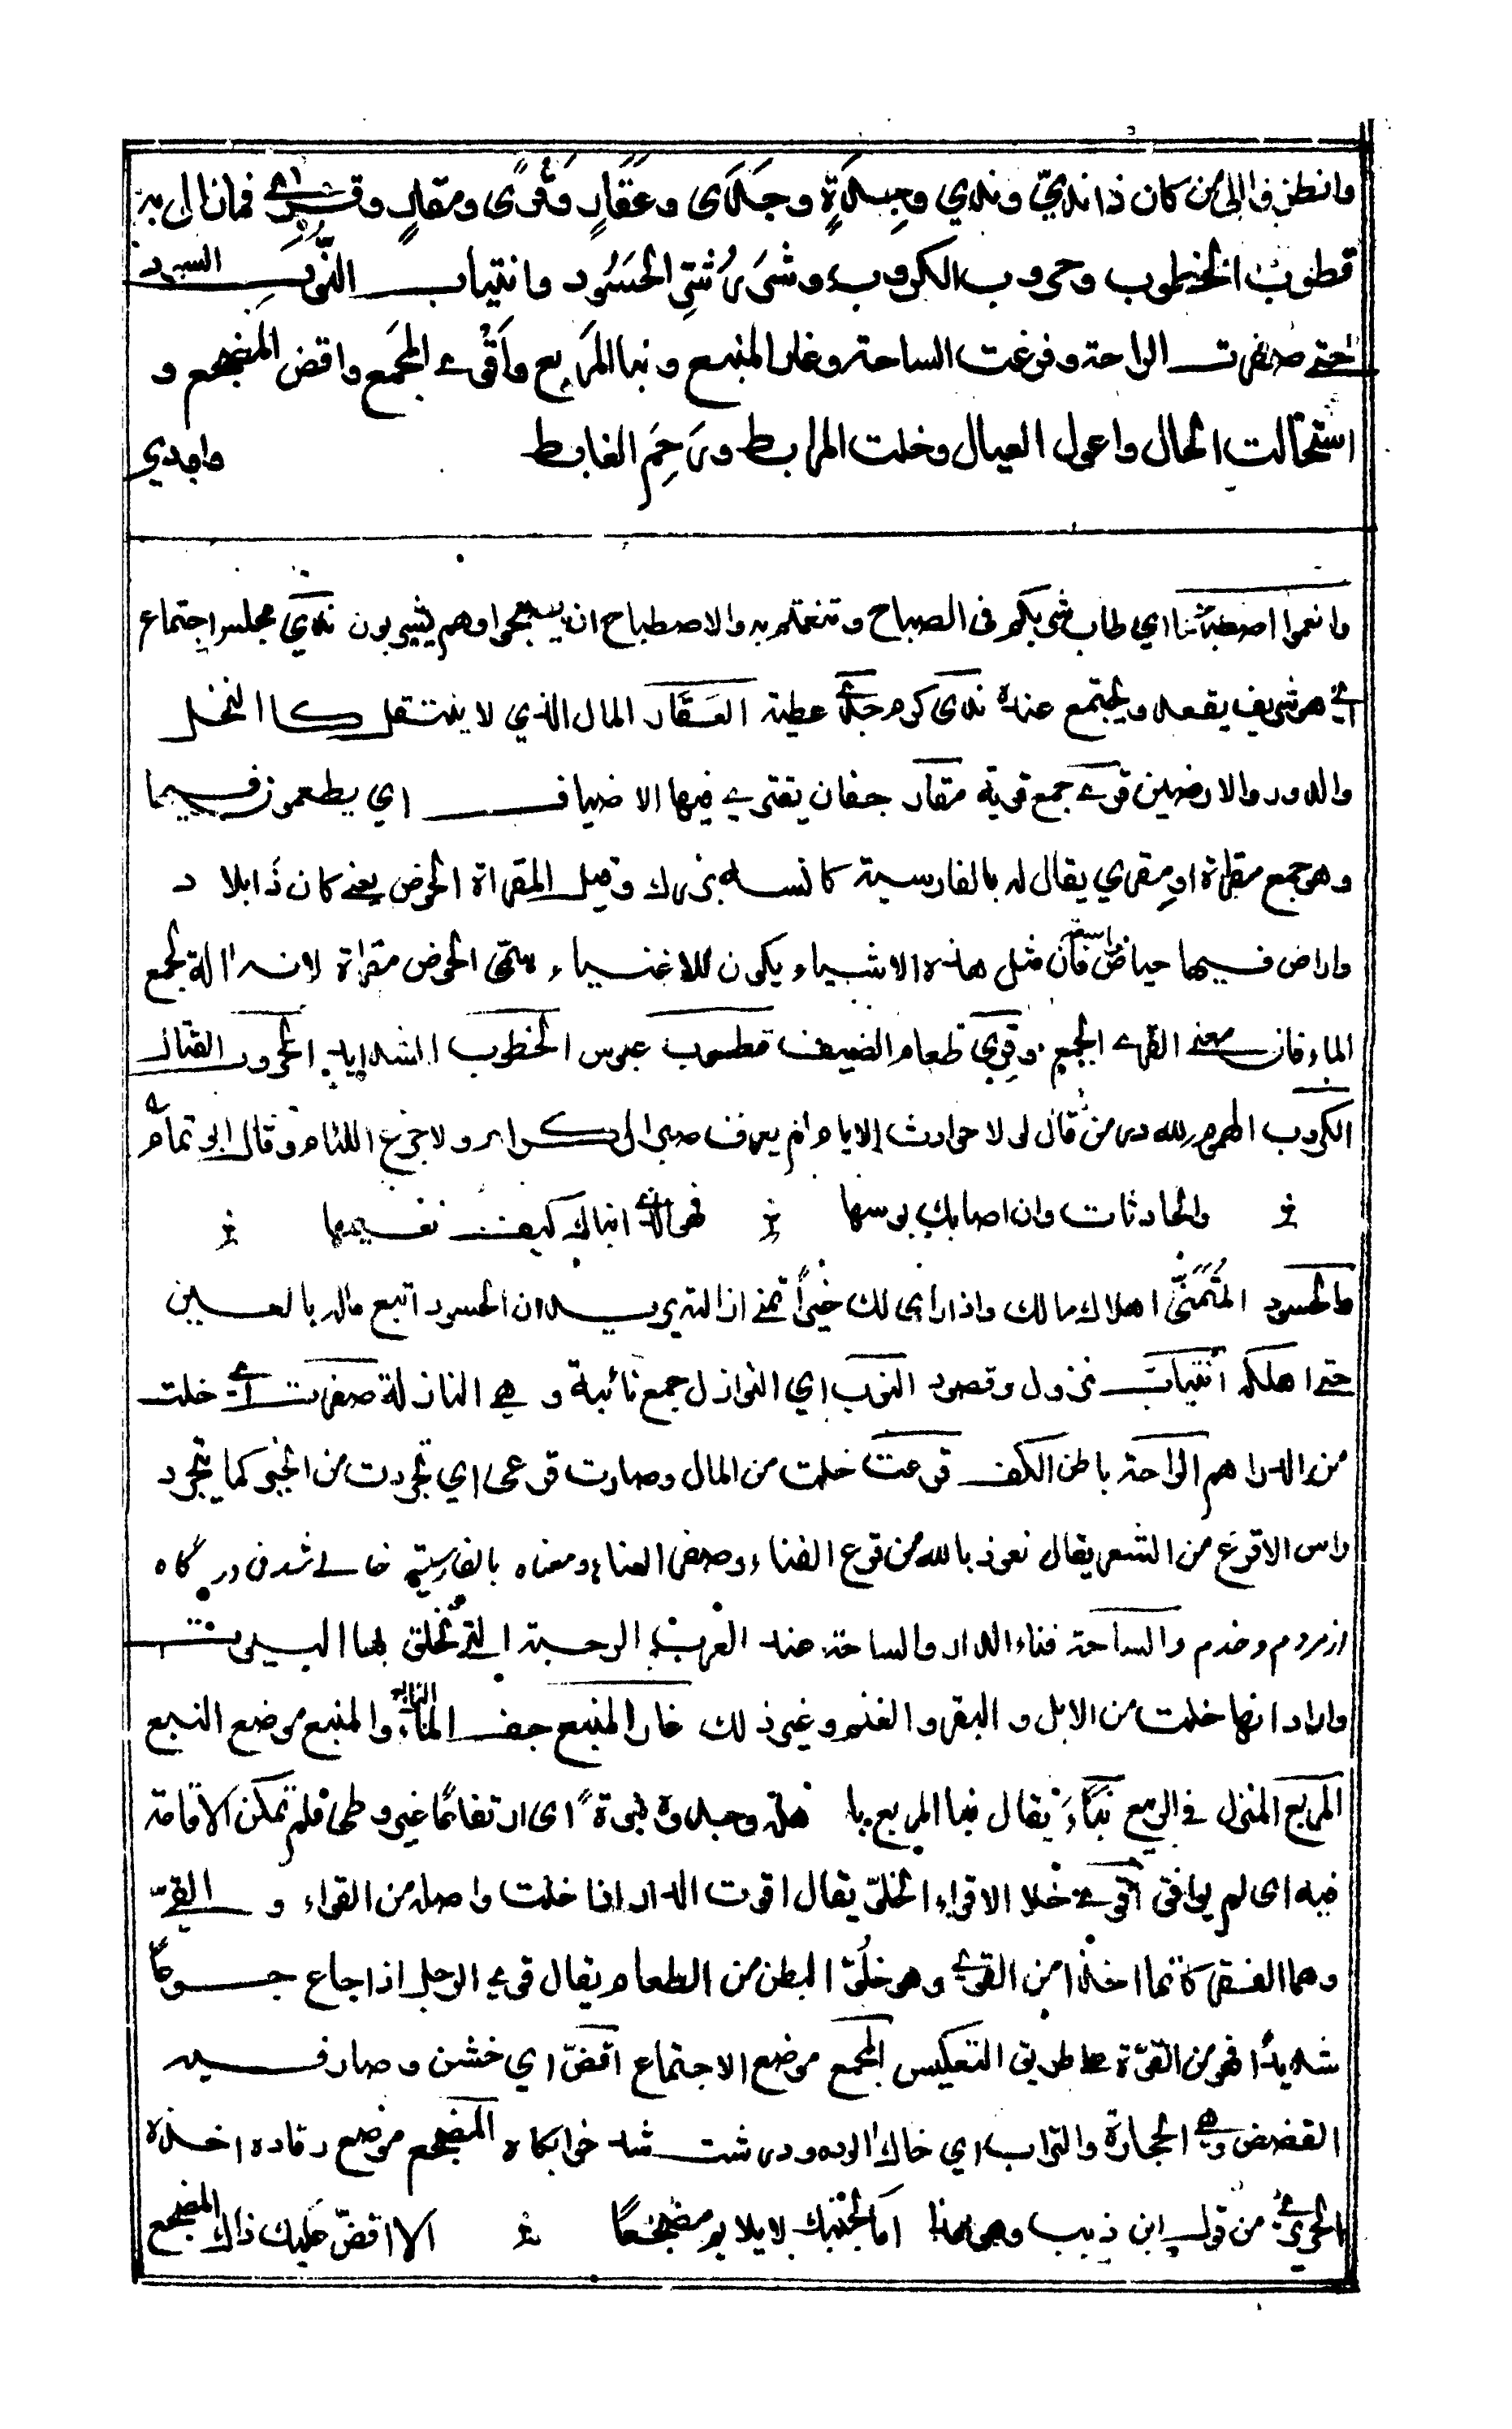 وانظروا الى من كان ذا نديّ وندي وجِدَةٍ وجَدَى وعَقَارٍ وقُرًى ومقارٍ وقِرًى فما زال به
قطوبُ الخطوب وحروب الكروب وشرَرُ شَرِّ الحَسُود وانتياب النُّوَبِ السود
حتى صفرت الراحة وقرعت الساحة وغار المنبع ونبا المَربع وأقْوى المَجمع واقض المضجع و
استحالت الحال واعول العيال وخلت المرابط ورَحِمَ الغابط واودي
وانعموا اصطباحا اي طاب شربكم في الصباح وتنعمتم به والاصطباح ان يصبحوا وهم يشربون نديّ مجلس اجتماع
اي هو شريف يقعد ويجتمع عنده ندى كرم جدى عطية العَقَار المال الذي لا ينتقل كالنخل
والدور والارضين قرى جمع قرية مقار جفان يقترى فيها الاضياف اي يطعمون فيها
وهو جمع مقراة او مقرى يقال له بالفارسية كاسه بزرك وقيل المقراة الحوض يعني كان ذا بلاد
واراض فيها حياض واسعة فان مثل هذه الاشياء يكون للاغنياء وسمّى الحوض مقراة لانه الة لجمع
الماء فان معنى القرى الجمع وقِرى طعام الضيف قطوب عبوس الخطوب الشدايد الحروب القتال
الكروب الهموم لله در من قال لولا حوادث الايام لم يعرف صبر الكرام ولا جزع اللئام وقال ابو تمام
والحادثات وان اصابك بوسها فهو الذي انباك كيف نعيمها
والحسود المُتَمَنّي اهلاك مالك واذا راى لك خيرًا تمنى ازالته يريد ان الحسود اتبع ماله بالعين
حتى اهلكه انتياب نزول وقصود النوب اي النوازل جمع نائبة وهي النازلة صفرت اي خلت
من الدراهم الراحة باطن الكف قرعت خلت من المال وصارت قرعى اي تجردت من الخير كما يتجرد
راس الاقرع من الشعر يقال نعوذ بالله من قرع الفناء وصفر الاناء ومعناه بالفارسية خالى شدن درگاه
از مردم وخدم والساحة فناء الدار والساحة عند العرب الرحبة التي تحلق بها البيوت
واراد انها خلت من الابل والبقر والغنم وغير ذلك غار المنبع جف الماء النابع والمنبع موضع النبع
المربع المنزل في الربيع نَبَا يقال نبا المربع باهله وجدوه نبوة اى ارتفاعًا غير وطى فلم تمكن الاقامة
فيه اى لم يوافق اقوى خلا الاقواء الخلوّ يقال اقوت الدار اذا خلت واصله من القواء و القِيّ
وهما القفر كانما اخذا من القوى وهو خلُوّ البطن من الطعام يقال قوى الرجل اذا جاع جوعًا
شديدًا فهو من القوّة على طريق التعكيس المجمع موضع الاجتماع اقضّ اي خشن وصار فيه
القضض وهي الحجارة والتراب اي خاك الوده ودرشت شد خوابگاه المضجع موضع رقاده اخذه
الحريري من قول ابن ذيب وهو هذا اما لجنبك لا يلايم مضجعًا الا اقضّ عليك ذاك المضجع